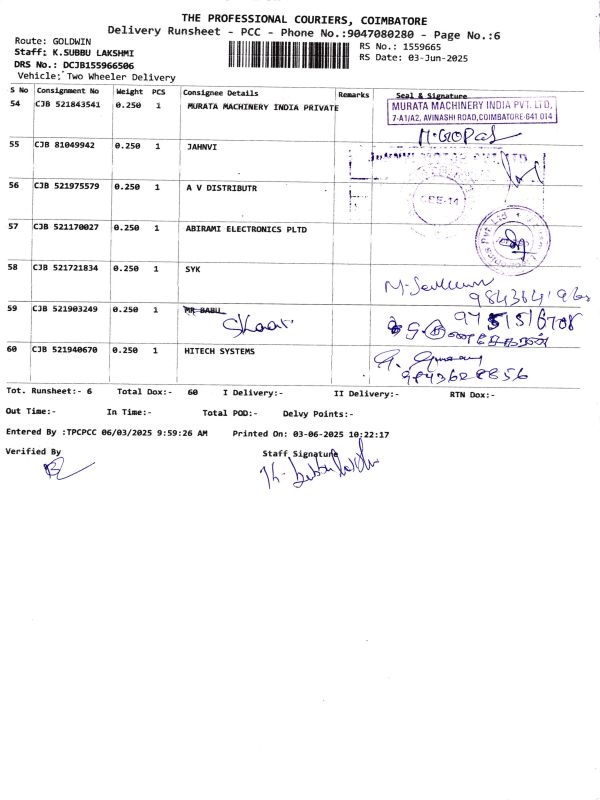 THE PROFESSIONAL COURIERS, COIMBATORE
Delivery Runsheet - PCC - Phone No.:9047080280 - Page No.:6
Route: GOLDWIN
RS No.: 1559665
Staff: K.SUBBU LAKSHMI
RS Date: 03-Jun-2025
DRS No.: DCJB155966506
Vehicle: Two Wheeler Delivery
S No Consignment No Weight PCS Consignee Details Remarks Seal & Signature
54 CJB 521843541 0.250 1 MURATA MACHINERY INDIA PRIVATE
MURATA MACHINERY INDIA PVT. LTD,
7-A1/A2, AVINASHI ROAD, COIMBATORE-641 014
M. GOPAL
55 CJB 81049942 0.250 1 JAHNVI
56 CJB 521975579 0.250 1 A V DISTRIBUTR
57 CJB 521170027 0.250 1 ABIRAMI ELECTRONICS PLTD
58 CJB 521721834 0.250 1 SYK
59 CJB 521903249 0.250 1 MR BABU
9751516708
60 CJB 521940670 0.250 1 HITECH SYSTEMS
9843628856
Tot. Runsheet:- 6 Total Dox:- 60 I Delivery:- II Delivery:- RTN Dox:-
Out Time:- In Time:- Total POD:- Delvy Points:-
Entered By :TPCPCC 06/03/2025 9:59:26 AM Printed On: 03-06-2025 10:22:17
Verified By Staff Signature